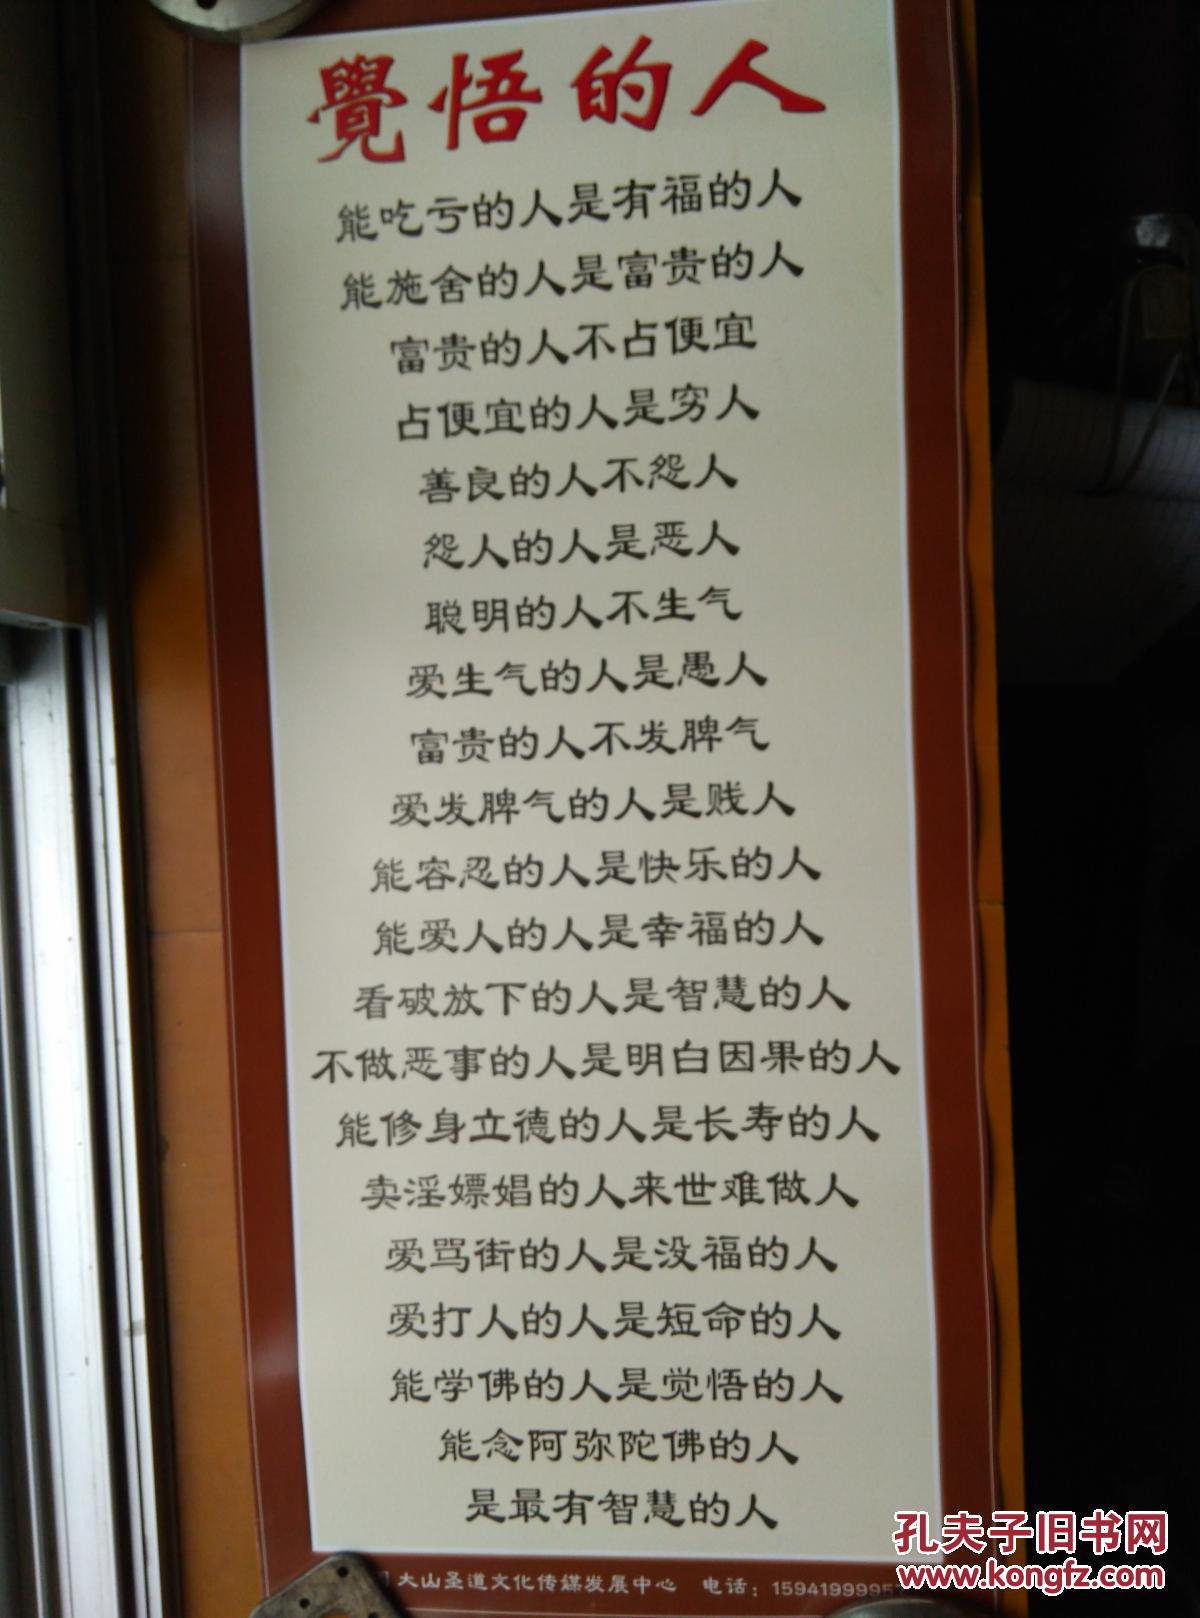 覺悟的人
能吃亏的人是有福的人
能施舍的人是富贵的人
富贵的人不占便宜
占便宜的人是穷人
善良的人不怨人
怨人的人是恶人
聪明的人不生气
爱生气的人是愚人
富贵的人不发脾气
爱发脾气的人是贱人
能容忍的人是快乐的人
能爱人的人是幸福的人
看破放下的人是智慧的人
不做恶事的人是明白因果的人
能修身立德的人是长寿的人
卖淫嫖娼的人来世难做人
爱骂街的人是没福的人
爱打人的人是短命的人
能学佛的人是觉悟的人
能念阿弥陀佛的人
是最有智慧的人
大山圣道文化传媒发展中心 电话：1594199995
孔夫子旧书网
www.kongfz.com